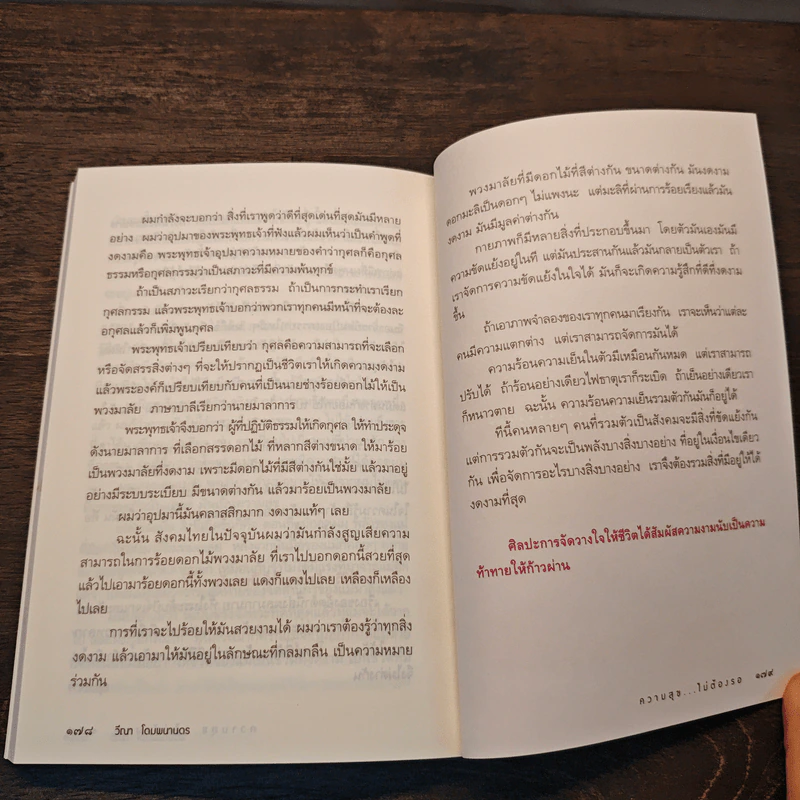 ผมกำลังจะบอกว่า สิ่งที่เราพูดว่าดีที่สุดเด่นที่สุดมันมีหลาย
อย่าง ผมว่าอุปมาของพระพุทธเจ้าที่ฟังแล้วผมเห็นว่าเป็นคำพูดที่
งดงามคือ พระพุทธเจ้าอุปมาความหมายของคำว่ากุศลก็คือกุศล
ธรรมหรือกุศลกรรมว่าเป็นสภาวะที่มีความพ้นทุกข์
ถ้าเป็นสภาวะเรียกว่ากุศลธรรม ถ้าเป็นการกระทำเราเรียก
กุศลกรรม แล้วพระพุทธเจ้าบอกว่าพวกเราทุกคนมีหน้าที่จะต้องละ
อกุศลแล้วก็เพิ่มพูนกุศล
พระพุทธเจ้าเปรียบเทียบว่า กุศลคือความสามารถที่จะเลือก
หรือจัดสรรสิ่งต่างๆ ที่จะให้ปรากฏเป็นชีวิตเราให้เกิดความงดงาม
แล้วพระองค์ก็เปรียบเทียบกับคนที่เป็นนายช่างร้อยดอกไม้ให้เป็น
พวงมาลัย ภาษาบาลีเรียกว่านายมาลาการ
พระพุทธเจ้าจึงบอกว่า ผู้ที่ปฏิบัติธรรมให้เกิดกุศล ให้ทำประดุจ
ดังนายมาลาการ ที่เลือกสรรดอกไม้ ที่หลากสีต่างขนาด ให้มาร้อย
เป็นพวงมาลัยที่งดงาม เพราะมีดอกไม้ที่มีสีต่างกันใช่มั้ย แล้วมาอยู่
อย่างมีระบบระเบียบ มีขนาดต่างกัน แล้วมาร้อยเป็นพวงมาลัย
ผมว่าอุปมานี้มันคลาสสิกมาก งดงามแท้ๆ เลย
ฉะนั้น สังคมไทยในปัจจุบันผมว่ามันกำลังสูญเสียความ
สามารถในการร้อยดอกไม้พวงมาลัย ที่เราไปบอกดอกนี้สวยที่สุด
แล้วไปเอามาร้อยดอกนี้ทั้งพวงเลย แดงก็แดงไปเลย เหลืองก็เหลือง
ไปเลย
การที่เราจะไปร้อยให้มันสวยงามได้ ผมว่าเราต้องรู้ว่าทุกสิ่ง
งดงาม แล้วเอามาให้มันอยู่ในลักษณะที่กลมกลืน เป็นความหมาย
ร่วมกัน
๑๗๘ วีณา โดมพนานดร
พวงมาลัยที่มีดอกไม้ที่สีต่างกัน ขนาดต่างกัน มันงดงาม
ดอกมะลิเป็นดอกๆ ไม่แพงนะ แต่มะลิที่ผ่านการร้อยเรียงแล้วมัน
งดงาม มันมีมูลค่าต่างกัน
กายภาพก็มีหลายสิ่งที่ประกอบขึ้นมา โดยตัวมันเองมันมี
ความขัดแย้งอยู่ในที แต่มันประสานกันแล้วมันกลายเป็นตัวเรา ถ้า
เราจัดการความขัดแย้งในใจได้ มันก็จะเกิดความรู้สึกที่ดีที่งดงาม
ขึ้น
ถ้าเอาภาพจำลองของเราทุกคนมาเรียงกัน เราจะเห็นว่าแต่ละ
คนมีความแตกต่าง แต่เราสามารถจัดการมันได้
ความร้อนความเย็นในตัวมีเหมือนกันหมด แต่เราสามารถ
ปรับได้ ถ้าร้อนอย่างเดียวไฟธาตุเราก็ระเบิด ถ้าเย็นอย่างเดียวเรา
ก็หนาวตาย ฉะนั้น ความร้อนความเย็นรวมตัวกันมันก็อยู่ได้
ทีนี้คนหลายๆ คนที่รวมตัวเป็นสังคมจะมีสิ่งที่ขัดแย้งกัน
แต่การรวมตัวกันจะเป็นพลังบางสิ่งบางอย่าง ที่อยู่ในเงื่อนไขเดียว
กัน เพื่อจัดการอะไรบางสิ่งบางอย่าง เราจึงต้องรวมสิ่งที่มีอยู่ให้ได้
งดงามที่สุด
ศิลปะการจัดวางใจให้ชีวิตได้สัมผัสความงามนับเป็นความ
ท้าทายให้ก้าวผ่าน
ความสุข...ไม่ต้องรอ ๑๗๙